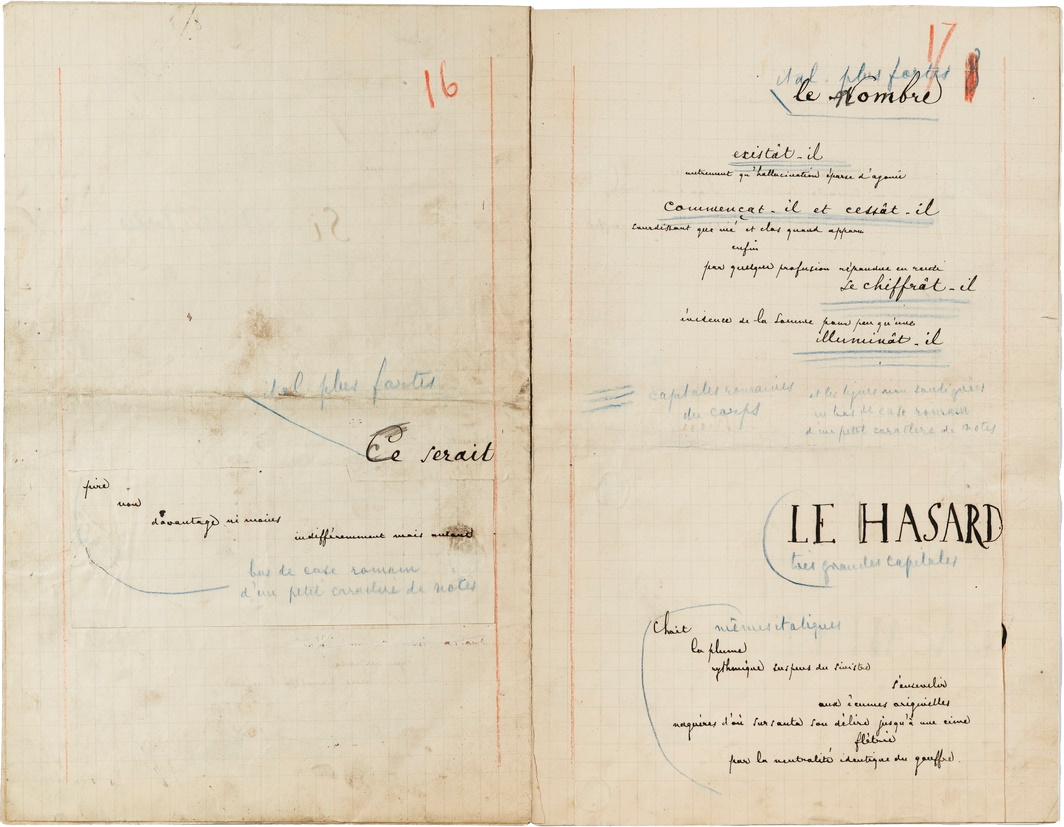 16
ital. plus fortes
Ce serait
pire
non
davantage ni moins
indifféremment mais autant
bas de casse romain
d'un petit caractère de notes
17
ital. plus fortes
le Nombre
existât-il
autrement qu'hallucination éparse d'agonie
commençat-il et cessât-il
sourdissant que nié et clos quand apparu
enfin
par quelque profusion répandue en rareté
se chiffrât-il
évidence de la somme pour peu qu'une
illuminât-il
capitales romaines
du corps
et les lignes non soulignées
en bas de casse romain
d'un petit caractère de notes
LE HASARD
très grandes capitales
Choit
mêmes italiques
la plume
rythmique suspens du sinistre
s'ensevelir
aux écumes originelles
naguères d'où sursauta son délire jusqu'à une cime
flétrie
par la neutralité identique du gouffre